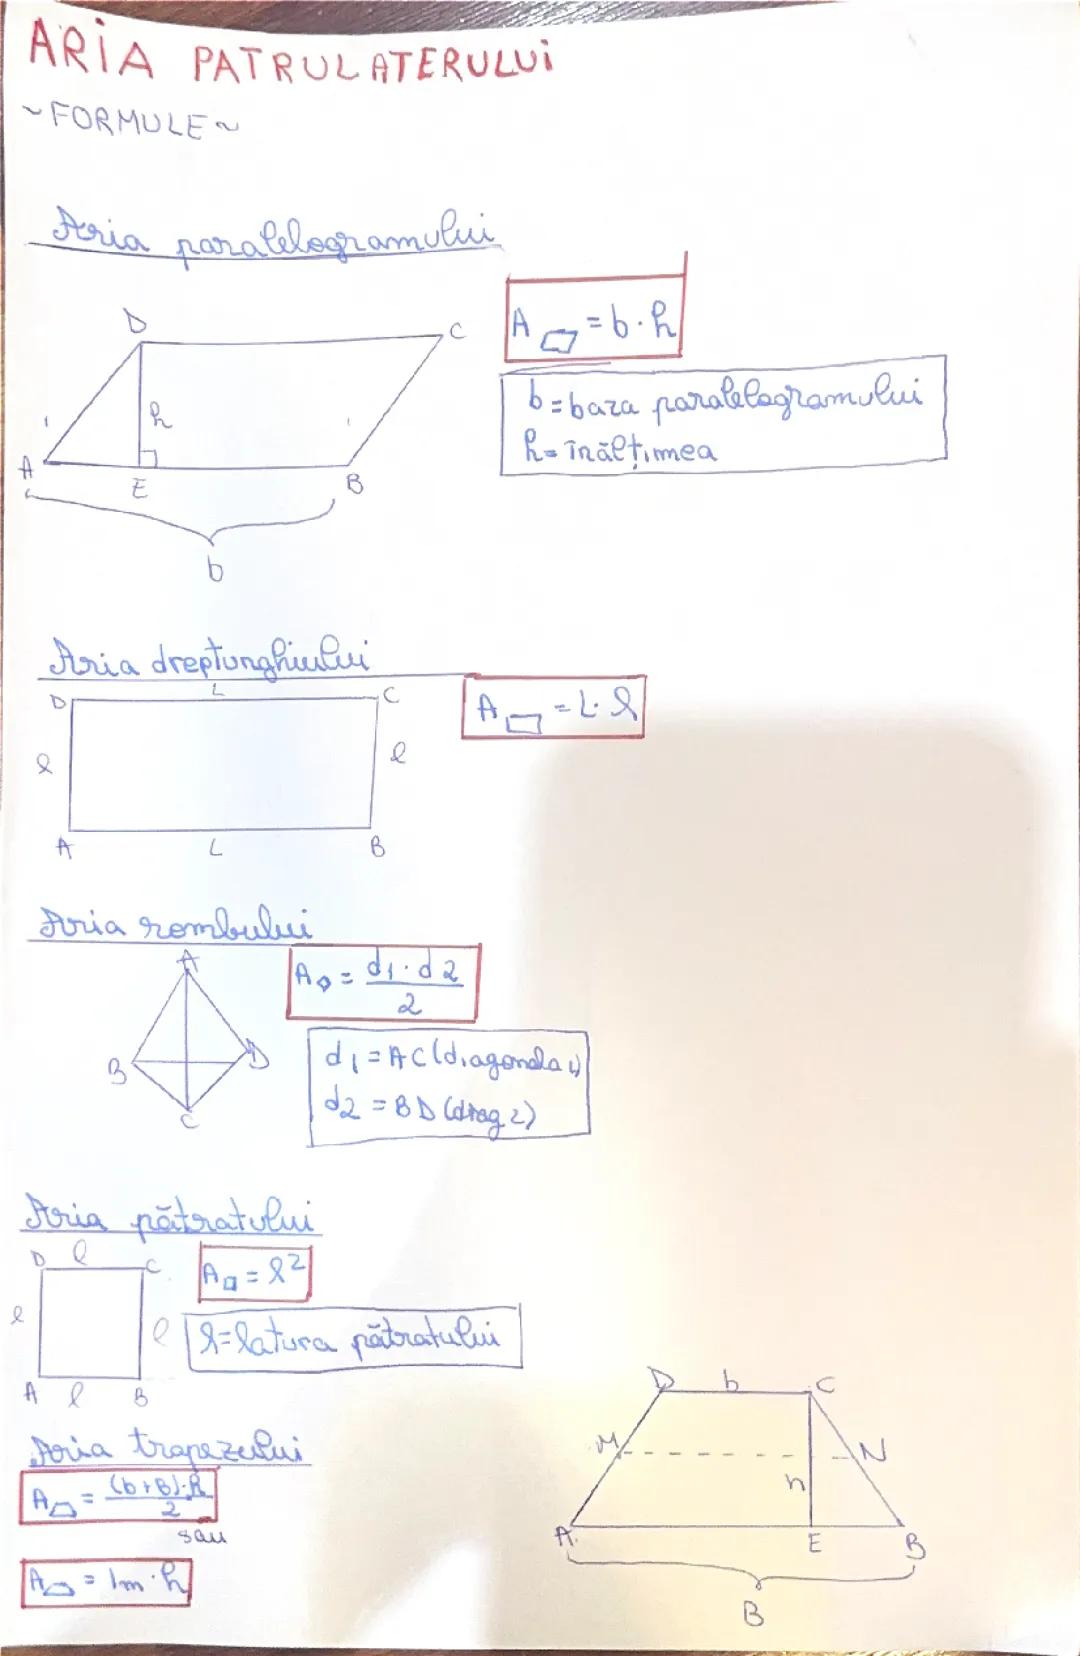 ARiA PATRULATERULUi
~FORMULE~
Aria paralelogramului
D
C
h
A
E
B
b
A▱=b·h
b=baza paralelogramului
h=înălțimea
Aria dreptunghiului
D
L
C
l
l
A
L
B
A▭=L·l
Aria rombului
A
B
D
C
A◇=d1·d2/2
d1=AC(diagonala 1)
d2=BD(diag 2)
Aria pătratului
D l C
l
l
A l B
A□=l²
l=latura pătratului
Aria trapezului
A⏢=(b+B)·h/2
sau
A⏢=lm·h
D b C
M
N
h
A
E
B
B